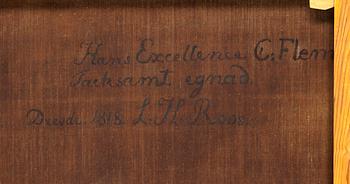 Hans Excellence C. Flem
Tacksamt egnad.
Dresde. 1818 L. H. Roos.